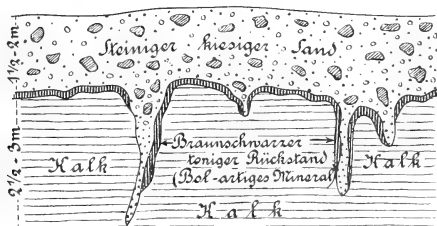 1½-2m
Steiniger kiesiger Sand
2½ - 3m
Braunschwarzer
toniger Rückstand
(Bol-artiges Mineral)
Kalk
Kalk
Kalk